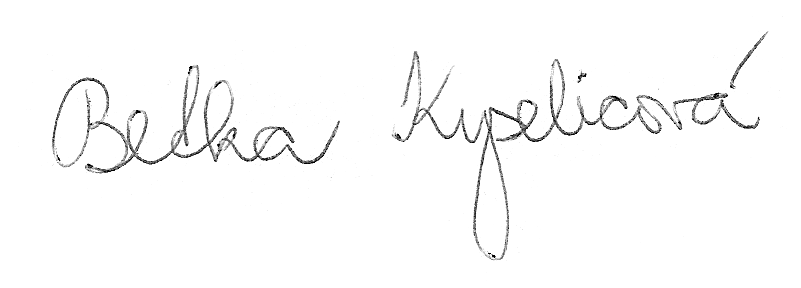 Beďka Kyselicová